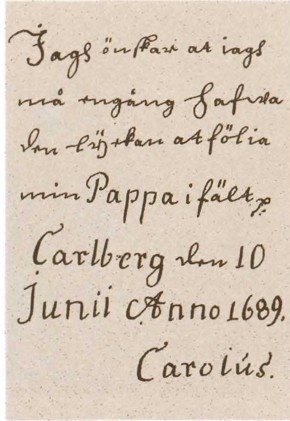 Jagh önskar at iagh
må engång hafwa
den lÿckan at fölia
min Pappa i fält
Carlberg den 10
Junii Anno 1689.
Carolús.